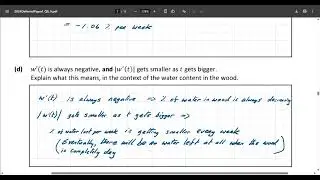 = -1.06 % per week
(d) w'(t) is always negative, and |w'(t)| gets smaller as t gets bigger.
Explain what this means, in the context of the water content in the wood.
w'(t) is always negative ⇒ % of water in wood is always decreasing
|w'(t)| gets smaller as t gets bigger ⇒
% of water lost per week is getting smaller every week
(Eventually, there will be no water left at all when the wood
is completely dry)